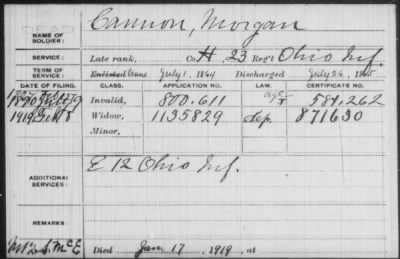 NAME OF SOLDIER: Cannon, Morgan
SERVICE: Late rank, Co. H. 23 Reg't Ohio Inf.
TERM OF SERVICE: Enlisted July 1, 1864 Discharged July 26, 1865
DATE OF FILING. CLASS. APPLICATION NO. LAW. CERTIFICATE NO.
1890 Invalid, 800.611 age 581,262
1919 Widow, 1135829 871630
Minor,
ADDITIONAL SERVICES: E 12 Ohio Inf.
REMARKS:
Died Jan. 17, 1919, at